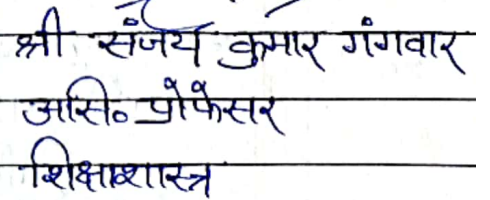 श्री संजय कुमार गंगवार
असि० प्रोफेसर
शिक्षाशास्त्र